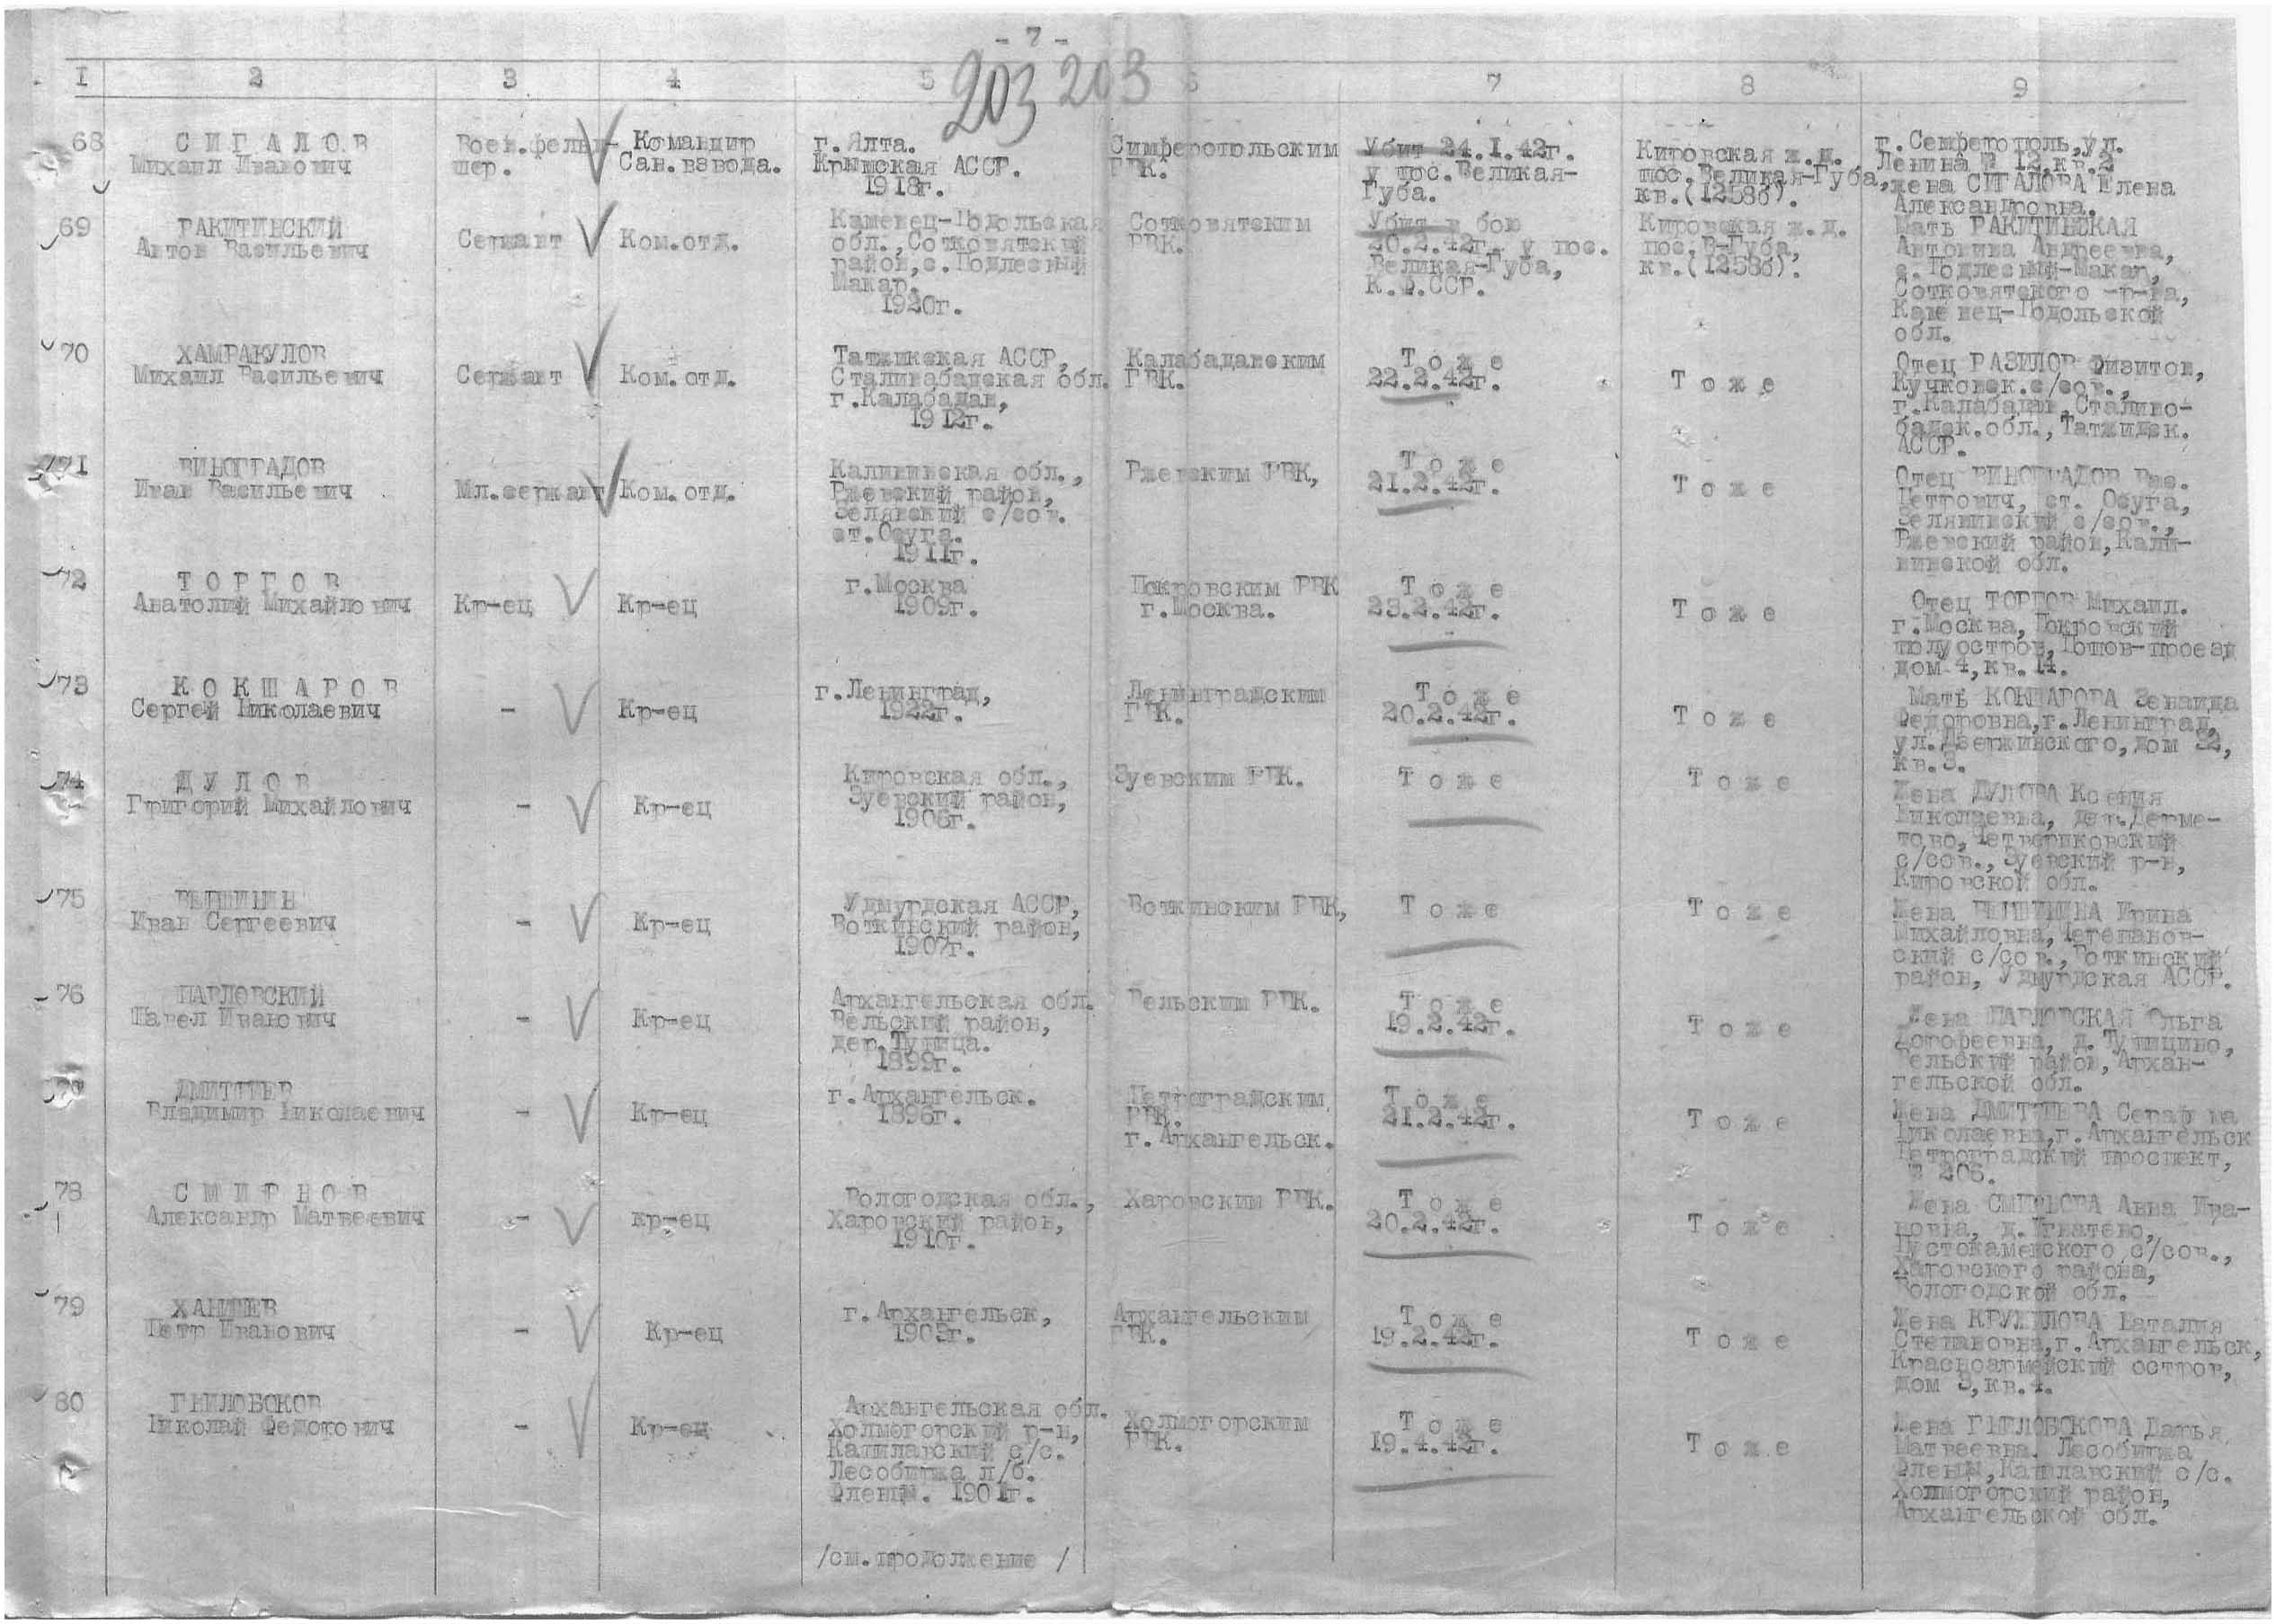 - 7 -
203 203
I 2 3 4 5 6 7 8 9
68
С И Г А Л О В
Михаил Иванович
Воен.фельд-
шер.
Командир
Сан.взвода.
г.Ялта.
Крымская АССР.
1918г.
Симферопольским
ГВК.
Убит 24.I.42г.
у пос.Великая-
Губа.
Кировская ж.д.
пос.Великая-Губа,
кв.(1258б).
г.Семферополь,ул.
Ленина № 12,кв.2
жена СИГАЛОВА Елена
Александровна.
69
РАКИТИНСКИЙ
Антон Васильевич
Сержант
Ком.отд.
Каменец-Подольская
обл.,Сотковятский
район,с.Подлесный
Макар.
1920г.
Сотковятским
РВК.
Убит в бою
20.2.42г. у пос.
Великая-Губа,
К.Ф.ССР.
Кировская ж.д.
пос.В-Губа,
кв.(1258б).
Мать РАКИТИНСКАЯ
Антонина Андреевна,
с.Подлесный-Макар,
Сотковятского -р-на,
Каменец-Подольской
обл.
70
ХАМРАКУЛОВ
Михаил Васильевич
Сержант
Ком.отд.
Татжикская АССР,
Сталинабадская обл.
г.Калабадан,
1912г.
Калабаданским
ГВК.
Т о ж е
22.2.42г.
Т о ж е
Отец РАЗИЛОВ Физитон,
Кучковск.с/сов.,
г.Калабадан,Сталино-
бадск.обл.,Татжидск.
АССР.
71
ВИНОГРАДОВ
Иван Васильевич
Мл.сержант
Ком.отд.
Калининская обл.,
Ржевский район,
Зелянский с/сов.
ст.Осуга.
1911г.
Ржевским РВК,
Т о ж е
21.2.42г.
Т о ж е
Отец ВИНОГРАДОВ Вас.
Петрович, ст. Осуга,
Зелянинский с/сов.,
Ржевский район,Кали-
нинской обл.
72
Т О Р Г О В
Анатолий Михайлович
Кр-ец
Кр-ец
г.Москва
1909г.
Покровским РВК
г.Москва.
Т о ж е
23.2.42г.
Т о ж е
Отец ТОРГОВ Михаил.
г.Москва,Покровский
полуостров,Попов-проезд
дом 4,кв.14.
73
К О К Ш А Р О В
Сергей Николаевич
-
Кр-ец
г.Ленинград,
1922г.
Ленинградским
ГВК.
Т о ж е
20.2.42г.
Т о ж е
Мать КОКШАРОВА Зенаида
Федоровна,г.Ленинград,
ул.Дзержинского,дом 32,
кв.3.
74
Д У Л О В
Григорий Михайлович
-
Кр-ец
Кировская обл.,
Зуевский район,
1906г.
Зуевским РВК.
Т о ж е
Т о ж е
Жена ДУЛОВА Ксения
Николаевна, дер.Дерме-
тово,Четвериковский
с/сов.,Зуевский р-н,
Кировской обл.
75
Иван Сергеевич
-
Кр-ец
Удмурдская АССР,
Воткинский район,
1907г.
Воткинским РВК,
Т о ж е
Т о ж е
Жена Ирина
Михайловна,Черепанов-
ский с/сов.,Воткинский
район, Удмурдская АССР.
76
ПАВЛОВСКИЙ
Павел Иванович
-
Кр-ец
Архангельская обл.
Вельский район,
дер.Тупица.
1899г.
Вельским РВК.
Т о ж е
19.2.42г.
Т о ж е
Жена ПАВЛОВСКАЯ Ольга
Дорофеевна, д.Тупицино,
Вельский район,Архан-
гельской обл.
77
ДМИТРИЕВ
Владимир Николаевич
-
Кр-ец
г.Архангельск.
1896г.
Петроградским
РВК.
г.Архангельск.
Т о ж е
21.2.42г.
Т о ж е
Жена ДМИТРИЕВА
Николаевна,г.Архангельск
Петроградский проспект,
№ 206.
78
С М И Р Н О В
Александр Матвеевич
-
Кр-ец
Вологодская обл.,
Харовский район,
1910г.
Харовским РВК.
Т о ж е
20.2.42г.
Т о ж е
Жена СМИРНОВА Анна Ива-
новна, д.Игнатево,
Пустокаменского с/сов.,
Харовского района,
Вологодской обл.
79
ХАНТЕВ
Петр Иванович
-
Кр-ец
г.Архангельск,
1905г.
Архангельским
ГВК.
Т о ж е
19.2.42г.
Т о ж е
Жена КРУЖИЛОВА Наталия
Степановна,г.Архангельск,
Красноармейский остров,
дом 3,кв.4.
80
ГНИЛОБСКОВ
Николай Федорович
-
Кр-ец
Архангельская обл.
Холмогорский р-н,
Качиларский с/с.
Лесобиржа л/б.
Фленцы. 1901г.
Холмогорским
РВК.
Т о ж е
19.4.42г.
Т о ж е
Жена ГНИЛОБСКОВА Дарья
Матвеевна. Лесобиржа
Фленцы,Качиларский с/с.
Холмогорский район,
Архангельской обл.
/см.продолжение /